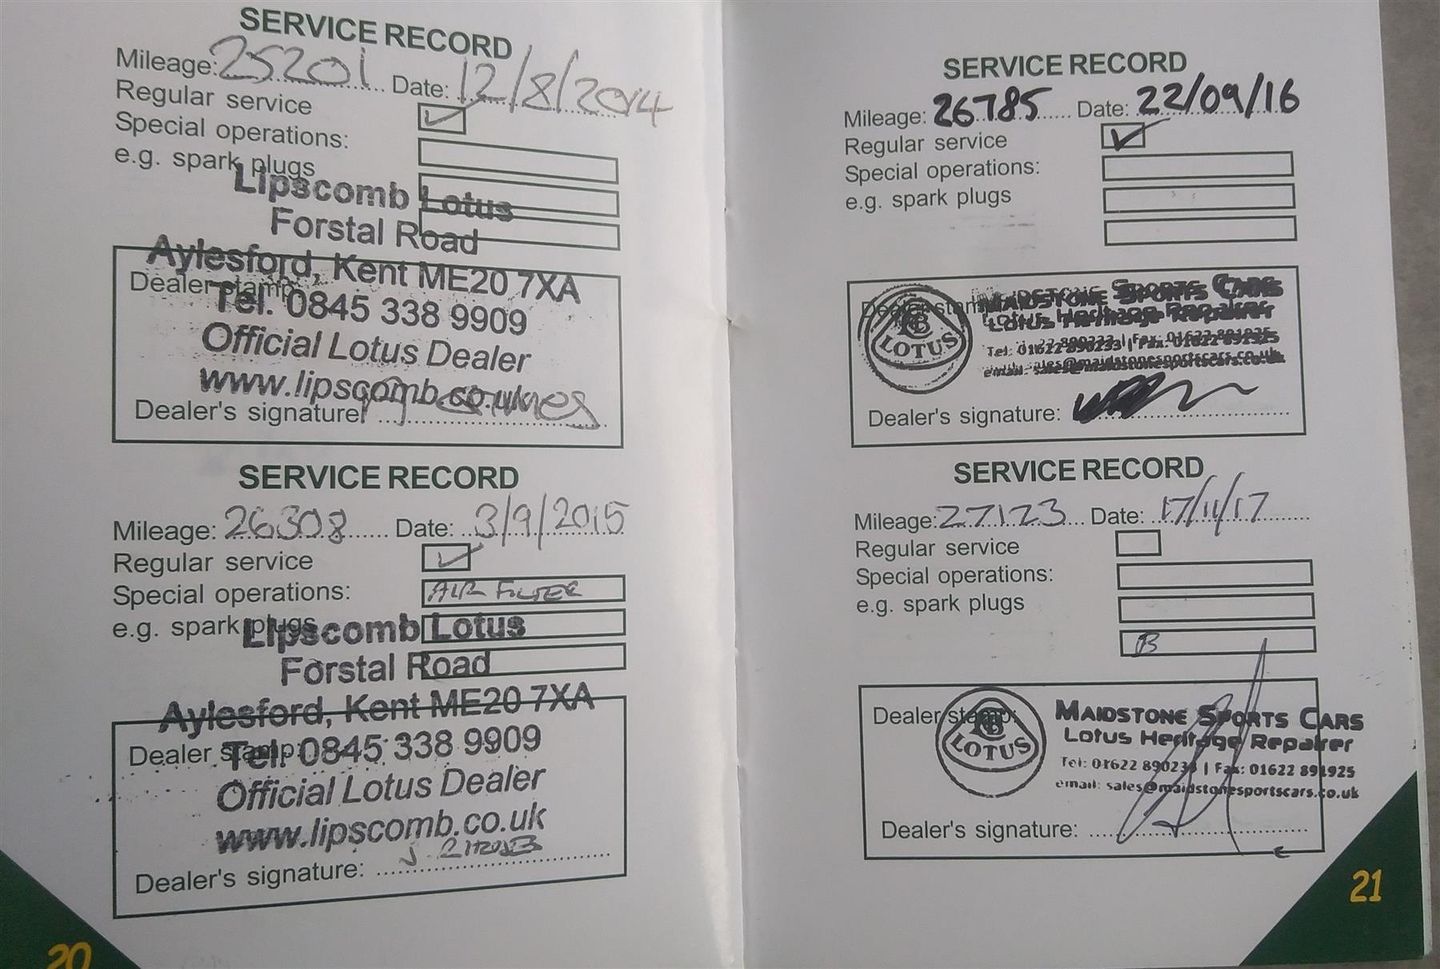 SERVICE RECORD
Mileage: 25201 Date: 12/8/2014
Regular service
Special operations:
e.g. spark plugs
Lipscomb Lotus
Forstal Road
Aylesford, Kent ME20 7XA
Dealer stamp:
Tel. 0845 338 9909
Official Lotus Dealer
www.lipscomb.co.uk
Dealer's signature:
SERVICE RECORD
Mileage: 26308 Date: 3/9/2015
Regular service
Special operations: AIR FILTER
e.g. spark plugs
Lipscomb Lotus
Forstal Road
Aylesford, Kent ME20 7XA
Dealer stamp:
Tel. 0845 338 9909
Official Lotus Dealer
www.lipscomb.co.uk
Dealer's signature:
20
SERVICE RECORD
Mileage: 26785 Date: 22/09/16
Regular service
Special operations:
e.g. spark plugs
Dealer stamp:
LOTUS
MAIDSTONE SPORTS CARS
Lotus Heritage Repairer
Tel: 01622 890233 | Fax: 01622 891925
email: sales@maidstonesportscars.co.uk
Dealer's signature:
SERVICE RECORD
Mileage: 27123 Date: 17/11/17
Regular service
Special operations:
e.g. spark plugs
B
Dealer stamp:
LOTUS
MAIDSTONE SPORTS CARS
Lotus Heritage Repairer
Tel: 01622 890233 | Fax: 01622 891925
email: sales@maidstonesportscars.co.uk
Dealer's signature:
21